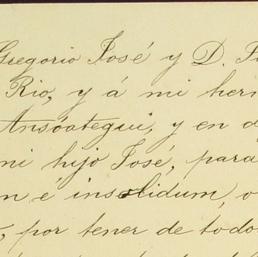 Gregorio José y D.
Rio, y á mi her
Ansóategui, y en d
mi hijo José, para
n é insolidum, o
, por tener de todo